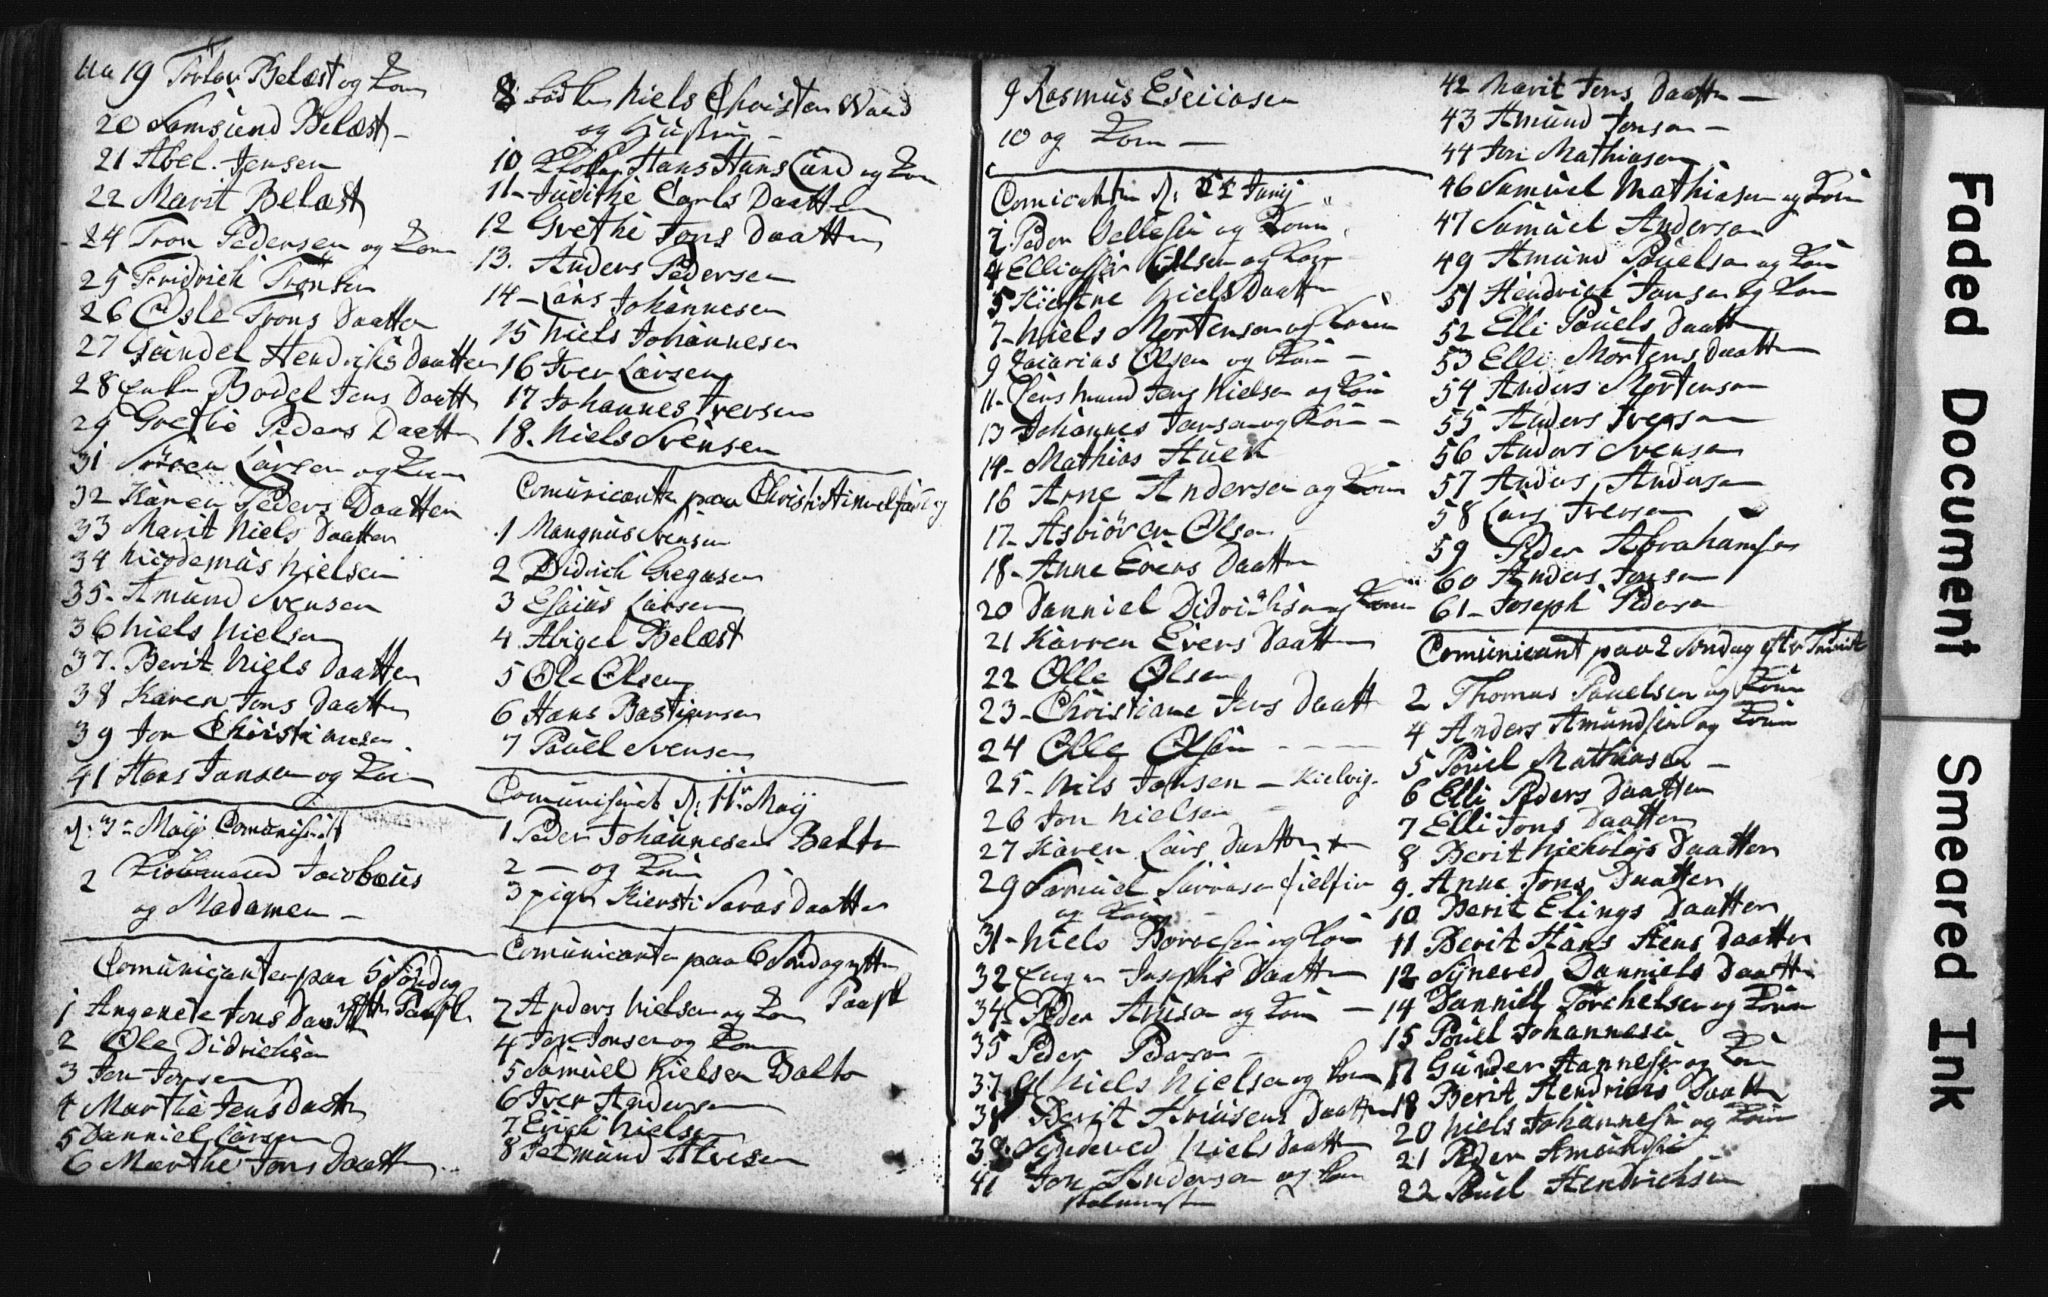 19 Belæst og Kone
20 Amund Belæst
21 Abel Jensen
22 Marit Belæst
24 Tron Pedersen og Kone
25 Fridrich Tronsen
26 Osle Trons Daatter
27 Gundel Hendrichs Daatter
28 Bodel Jens Daatter
29 Grethe Peders Daatter
31 Sören Larsen og Kone
32 Karen Peders Daatter
33 Marit Niels Daatter
34 Nicodemus Nielsen
35 Amund Svensen
36 Niels Nielsen
37 Berit Niels Daatter
38 Karen Jons Daatter
39 Jon Christiansen
41 Hans Jansen og Kone
d: 3 Maij
2 Jacobæus
og Madamen
Comunicanter paa 5 Söndag
efter Paask
1 Angenete Jons Daatter
2 Ole Didrichsen
3 Jon Jonsen
4 Marthe Jens Daatter
5 Danniel Larsen
6 Marthe Jons Daatter
8 Niels Christen
og Hustru
10 Hans Hans Lund og Kone
11 Judithe Carls Daatter
12 Grethe Jons Daatter
13. Anders Pedersen
14 Lars Johannesen
15 Niels Johannesen
16 Iver Larsen
17 Johannes Iversen
18 Niels Svensen
Comunicanter paa Christi Himelfart
1 Mangnus Svensen
2 Didrich Gregusen
3 Esaius Larsen
4 Abigel Belæst
5 Ole Olsen
6 Hans Bastiansen
7 Pouel Svensen
d: 11 Maij
1 Peder Johannesen Balto
2 — og Kone
3 piger Kiersti Saras Daatter
Comunicanter paa 6 Söndag efter
Paask
2 Anders Nielsen og Kone
4 Jon Jonsen og Kone
5 Samuel Nielsen Balto
6 Iver Andersen
7 Erich Nielsen
8 Iversen
9 Rasmus
10 og Kone —
d: Junij
2 Peder og Kone
4 Olsen og Kone
5 Kierstne Niels Daatter
7 Niels Mortensen og Kone
9 Zacarias Olsen og Kone
11 Jens Nielsen og Kone
13 Johannes Jonsen og Kone
14 Mathias
16 Arne Andersen og Kone
17 Asbiören Olsen
18 Anne Evers Daatter
20 Danniel Didrichsen og Kone
21 Karren Evers Daatter
22 Olle Olsen
23 Christiane Daatt
24 Olle Olsen
25 Nils Jonsen — Kielvig
26 Jon Nielsen
27 Karen Lars Daatter
29 Samuel
og Kone
31 Niels og Kone
32 Josephs Daatter
34 Peder og Kone —
35 Peder Pedersen
37 Niels Nielsen og Kone
38 Berit Daatter
39 Niels Daatter
41 Jon Andersen og Kone
42 Marit Jons Daatter —
43 Amund Jonsen —
44 Jon Mathiasen
46 Samuel Mathiasen og Kone
47 Samuel Andersen
49 Amund Pouelsen og Kone
51 Hendrich Jonsen og Kone
52 Elli Pouels Daatter
53 Elli Mortens Daatter
54 Anders Mortensen
55 Anders Iversen
56 Anders Svensen
57 Anders Andersen
58 Lars Iversen
59 Peder Abrahamsen
60 Anders Jonsen
61 Joseph Pedersen
Comunicant paa 2 Söndag efter Trinit
2 Thomas Pouelsen og Kone
4 Anders Amundsen og Kone
5 Pouel Mathiasen —
6 Elli Peders Daatter
7 Elli Jons Daatter
8 Berit Nicholais Daatter
9. Anne Jons Daatter
10 Berit Elings Daatter
11 Berit Hans Hens Daatter
12 Syneved Danniels Daatter
14 Danniel Torchelsen og Kone
15 Pouel Johannesen
17 Gunder Hannesen og Kone
18 Berit Hendrichs Daatter
20 Niels Johannesen og Kone
21 Peder Amundsen
22 Pouel Hendrichsen
Faded Document
Smeared Ink